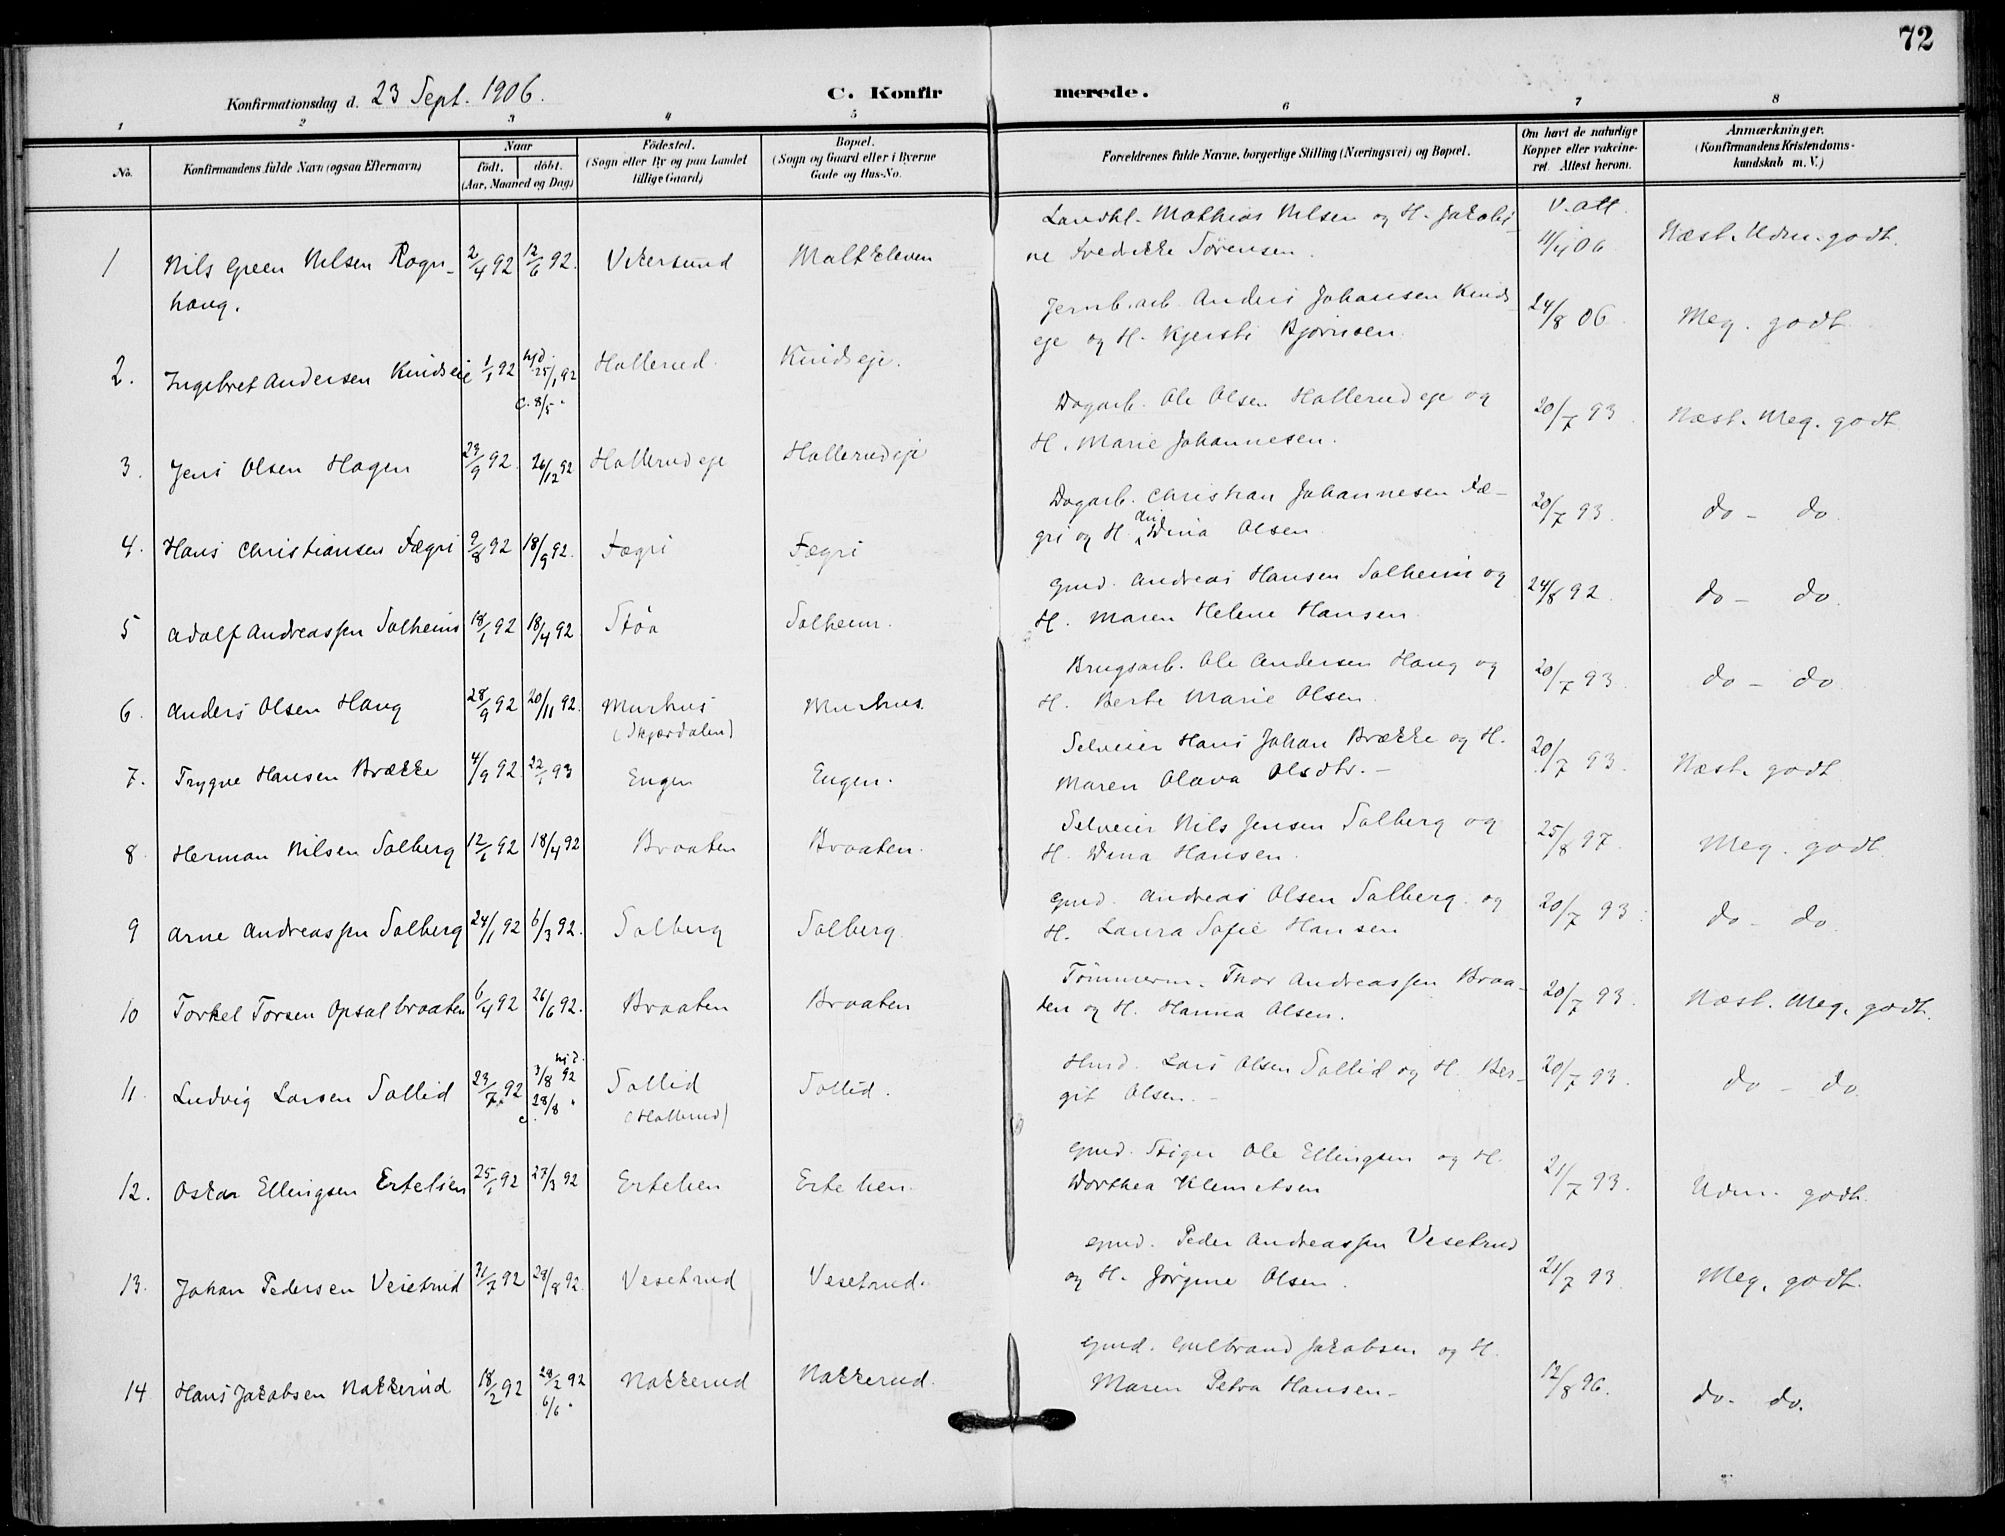 72
Konfirmationsdag d. 23 Sept. 1906. C. Konfirmerede.
1 2 3 4 5 6 7 8
No. Konfirmandens fulde Navn (ogsaa Efternavn) Naar födt. döbt. (Aar, Maaned og Dag) Födested. (Sogn eller By og paa Landet tillige Gaard) Bopæl. (Sogn og Gaard eller i Byerne Gade og Hus-No. Forældrenes fulde Navne, borgerlige Stilling (Næringsvei) og Bopæl. Om havt de naturlige Kopper eller vakcineret. Attest herom. Anmærkninger. (Konfirmandens Kristendomskundskab m. V.)
Landhl. Mathias Nilsen og H. Jakobi- v. att.
1 Nils Green Nilsen Rogn- 2/4 92 12/6 92. Vikersund Maltkleven ne Fredrikke Sörensen. 11/4 06 Næst. Udm. godt.
haug.
Jernb. arb. Anders Johansen Kinds 24/8 06. Meg. godt.
eje og H. Kjersti Bjørnsen.
2. Ingebret Andersen Kindseie 1/1 92 hjd. 25/1 92 Hallerud. Kindseje.
c. 8/5 "
Dagarb. Ole Olsen Hallerudeje og 20/7 93 Næst. Meg. godt
3. Jens Olsen Hagen 29/9 92. 26/12 92 Hallerudeje Hallerudeje H. Marie Johannesen.
Dagarb. Christian Johannesen Fæ- 20/7 93. do - do.
4. Hans Christiansen Fægri 9/8 92 18/9 92. Fægri Fægri gri og H. Dina Olsen
Gmd. Andreas Hansen Solheim og 24/8 92. do - do.
5 Adolf Andreassen Solheim 18/1 92 18/4 92. Støa Solheim. H. Maren Helene Hansen.
Brugsarb. Ole Andersen Haug og 20/7 93. do - do.
6. Anders Olsen Haug 28/9 92 20/11 92. Murhus Murhus. H. Berte Marie Olsen.
(Skjærdalen)
Selveier Hans Johan Brække og H. 20/7 93. Næst. godt
7. Trygve Hansen Brække 4/9 92. 22/1 93 Engen Engen. Maren Olava Olsdtr. -
Selveier Nils Jensen Solberg og 25/8 97. Meg. godt.
8 Herman Nilsen Solberg 12/1 92 18/4 92 Braaten Braaten. H. Dina Hansen.
Gmd. Andreas Olsen Solberg og 20/7 93. do - do.
9 Arne Andreassen Solberg 24/1 92 6/3 92. Solberg Solberg. H. Laura Sofie Hansen
Tömmerm. Thor Andreassen Braa- 20/7 93. Næst. Meg. godt.
10 Torkel Torsen Opsalbraaten 6/4 92 26/6 92. Braaten Braaten ten og H. Hanna Olsen.
Hmd. Lars Olsen Sollid og H. Ber- 20/7 93. do - do.
11. Ludvig Larsen Sollid 23/7 92 hjd. 3/8 92 Sollid Sollid. git Olsen. -
c. 28/8 " (Hallerud)
Gmd. Stiger Ole Ellingsen og H. 21/7 93. Udm. godt.
12. Oskar Ellingsen Ertelien 25/1 92 27/3 92 Ertelien Ertelien. Dorthea Klemetsen
Gmd. Peder Andreassen Vesetrud
13. Johan Pedersen Vesetrud 31/7 92 28/8 92. Vesetrud Vesetrud. og H. Jørgine Olsen. 21/7 93. Meg. godt.
Gmd. Gulbrand Jakobsen og H.
14 Hans Jakobsen Nakkerud 18/2 92 29/2 92 Nakkerud Nakkerud. Maren Petra Hansen - 12/8 96. do. do.
6/6 "